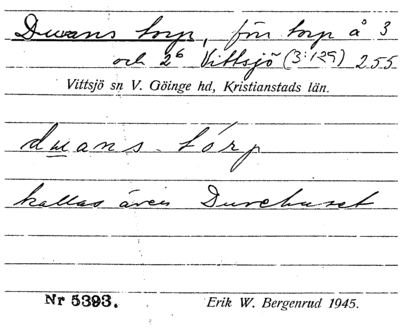 Dwans torp, för torp å 3
och 2⁶ Vittsjö (3:129) 255
Vittsjö sn V. Göinge hd, Kristianstads län.
dwans tórp
kallas även Durehuset
Nr 5393. Erik W. Bergenrud 1945.